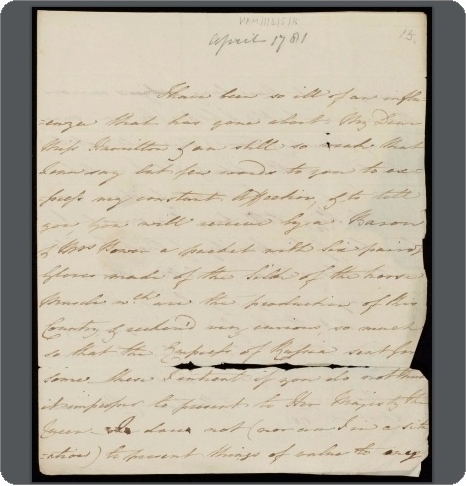 HAM/1/15/1/5
15.
April 1781
I have been so ill of an influ
=enza that has gone about My Dear
Miss Hamilton & am still so weak that
I can say but few words to you to ex=
press my constant Affection, & to tell
you, you will receive by a Baron
& Mrs a packet with six pairs of
Gloves made of the Silk of the horse
Muscle wch are the production of this
Country & reckon'd very curious, so much
so that the Empress of Russia sent for
some. these I intent if you do not think
it improper to present to Her Majesty the
Queen. I dare not (nor am I in a situ
=ation) to present things of value to any